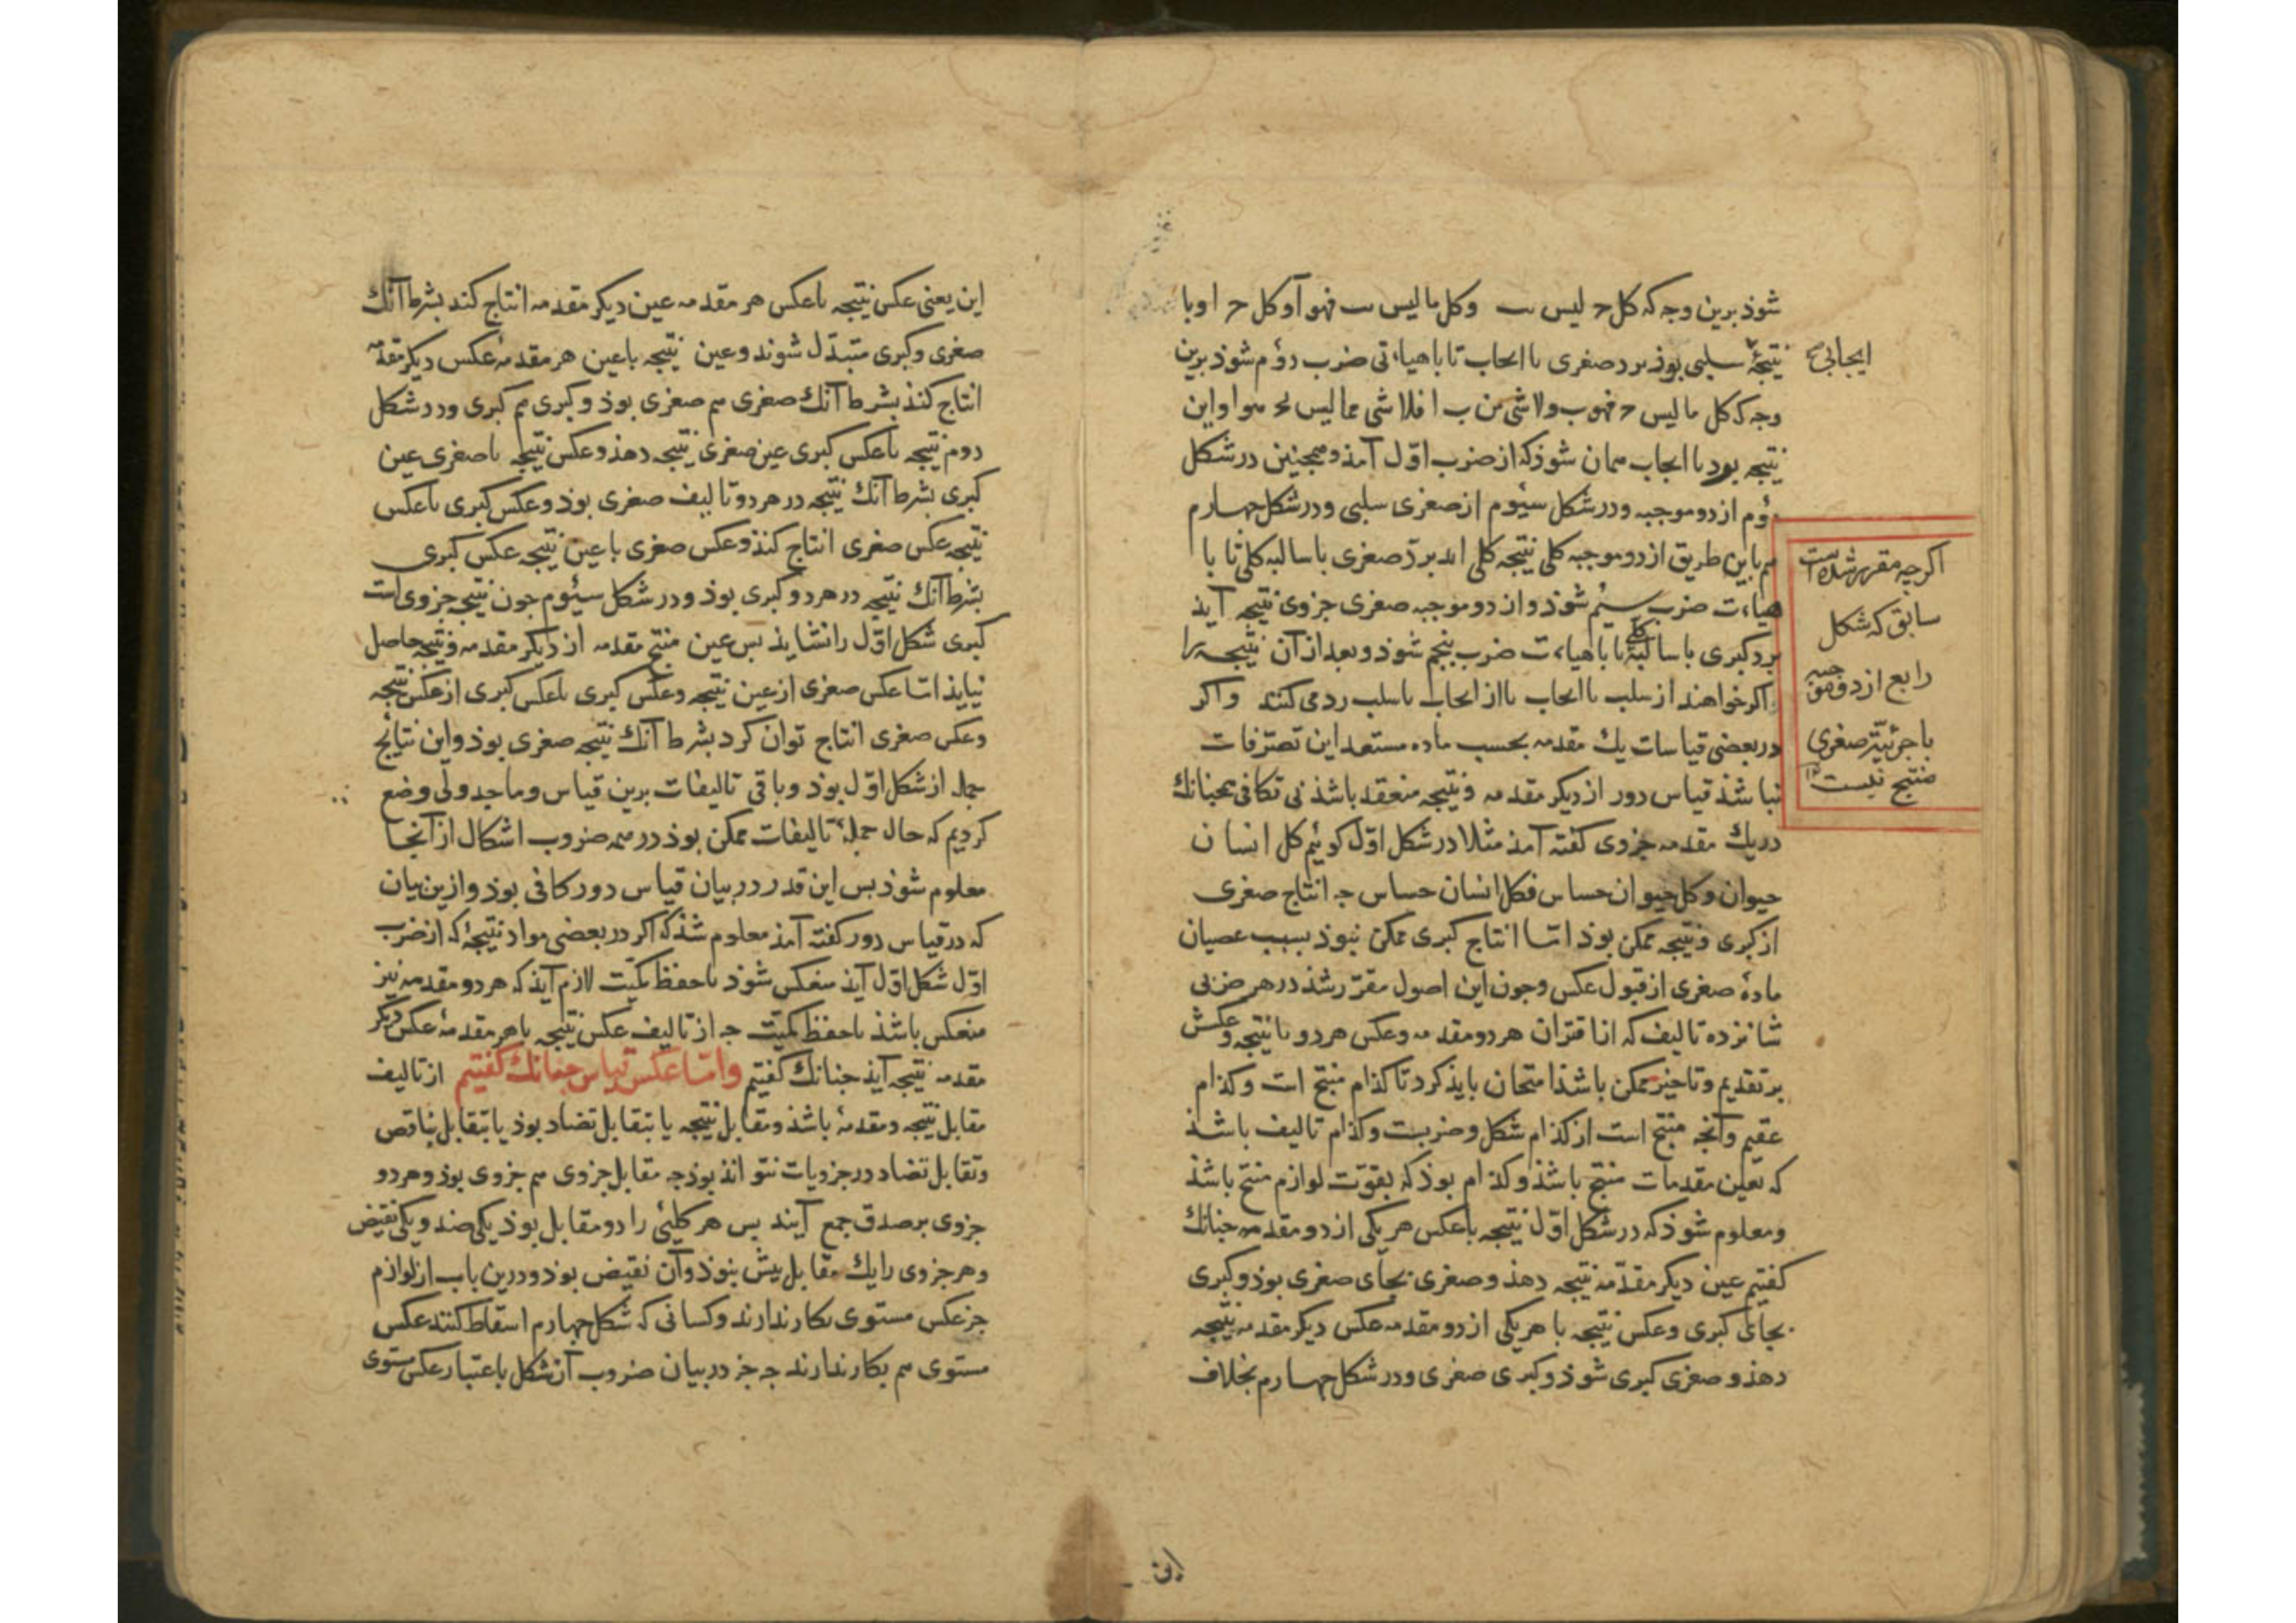 شوذ برین وجه که کل ح لیس ب وکل ما لیس ب فهو آ وکل ح ا و با
نتیجهٔ سلبی بوذ برد صغری با ایجاب تا با هیاءتی ضرب دوم شوذ برین
ایجابی صح
وجه که کل ما لیس ح فهو ب ولا شی من ب ا فلا شی مما لیس ح هو ا واین
نتیجه بود با ایجاب همان شوذ که از ضرب اول آمذ وهمجنین در شکل
دوم از دو موجبه ودر شکل سیوم از صغری سلبی ودر شکل جهارم
هم باین طریق از دو موجبه کلی نتیجه کلی اید برد صغری با سالبه کلی تا با
هیاءت ضرب سیم شوذ واز دو موجبه صغری جزوی نتیجه آیذ
برد کبری با سالبهٔ کلی تا با هیاءت ضرب بنجم شوذ وبعد از آن نتیجه را
اکر خواهند از سلب با ایجاب یا از ایجاب با سلب رد می کنند واکر
در بعضی قیاسات یك مقدمه بحسب ماده مستعد این تصرفات
نباشذ قیاس دور از دیکر مقدمه ونتیجه منعقد باشذ نی تکافی همجنانك
در یك مقدمه جزوی کفته آمذ مثلا در شکل اول کوئیم کل انسان
حیوان وکل حیوان حساس فکل انسان حساس جه انتاج صغری
از کبری ونتیجه ممکن بوذ اما انتاج کبری ممکن نبوذ بسبب عصیان
مادهٔ صغری از قبول عکس وجون این اصول مقرر شذ در هر ضربی
شانزده تالیف که از اقتران هر دو مقدمه وعکس هر دو با نتیجه وعکسش
بر تقدیم وتاخیر ممکن باشذ امتحان بایذ کرد تا کذام منتج است وکذام
عقیم وآنجه منتج است از کذام شکل وضربست وکذام تالیف باشذ
که بعین مقدمات منتج باشذ وکذام بوذ که بقوت لوازم منتج باشذ
ومعلوم شوذ که در شکل اول نتیجه با عکس هر یکی از دو مقدمه جنانك
کفتیم عین دیکر مقدمه نتیجه دهذ وصغری بجای صغری بوذ وکبری
بجای کبری وعکس نتیجه با هر یکی از دو مقدمه عکس دیکر مقدمه نتیجه
دهذ وصغری کبری شوذ وکبری صغری ودر شکل جهارم بخلاف
اکرجه مقرر شده است
سابق که شکل
رابع از دو موجبه
با جزئیة صغری
منتج نیست ۱۲
این
این یعنی عکس نتیجه با عکس هر مقدمه عین دیکر مقدمه انتاج کند بشرط آنك
صغری وکبری متبدل شوند وعین نتیجه با عین هر مقدمهٔ عکس دیکر مقدمه
انتاج کنذ بشرط آنك صغری هم صغری بوذ وکبری هم کبری ودر شکل
دوم نتیجه با عکس کبری عین صغری نتیجه دهذ وعکس نتیجه با صغری عین
کبری بشرط آنك نتیجه در هر دو تالیف صغری بوذ وعکس کبری با عکس
نتیجه عکس صغری انتاج کنذ وعکس صغری با عین نتیجه عکس کبری
بشرط آنك نتیجه در هر دو کبری بوذ ودر شکل سیوم جون نتیجه جزوی است
کبری شکل اول را نشایذ بس عین منتج مقدمه از دیکر مقدمه ونتیجه حاصل
نیایذ اما عکس صغری از عین نتیجه وعکس کبری با عکس کبری از عکس نتیجه
وعکس صغری انتاج توان کرد بشرط آنك نتیجه صغری بوذ واین نتایج
جمله از شکل اول بوذ وباقی تالیفات برین قیاس وما جدولی وضع
کردیم که حال جملهٔ تالیفات ممکن بوذ در همه ضروب اشکال از آنجا
معلوم شوذ بس این قدر در بیان قیاس دور کافی بوذ وازین بیان
که در قیاس دور کفته آمذ معلوم شذ که اکر در بعضی مواد نتیجهٔ که از ضرب
اول شکل اول آیذ منعکس شوذ با حفظ کمیت لازم آیذ که هر دو مقدمه نیز
منعکس باشذ با حفظ کمیت جه از تالیف عکس نتیجه با هر مقدمهٔ عکس دیکر
مقدمه نتیجه آیذ جنانك کفتیم واما عکس قیاس جنانك کفتیم از تالیف
مقابل نتیجه ومقدمهٔ باشذ ومقابل نتیجه یا بتقابل تضاد بوذ یا بتقابل تناقص
وتقابل تضاد در جزویات نتوانذ بوذ جه مقابل جزوی هم جزوی بوذ وهر دو
جزوی بر صدق جمع آیند بس هر کلیئی را دو مقابل بوذ یکی ضد ویکی نقیض
وهر جزوی را یك مقابل بیش نبوذ وآن نقیض بوذ ودرین باب از لوازم
جز عکس مستوی بکار ندارند وکسانی که شکل جهارم اسقاط کنند عکس
مستوی هم بکار ندارند جه جز در بیان ضروب آن شکل باعتبار عکس مستوی